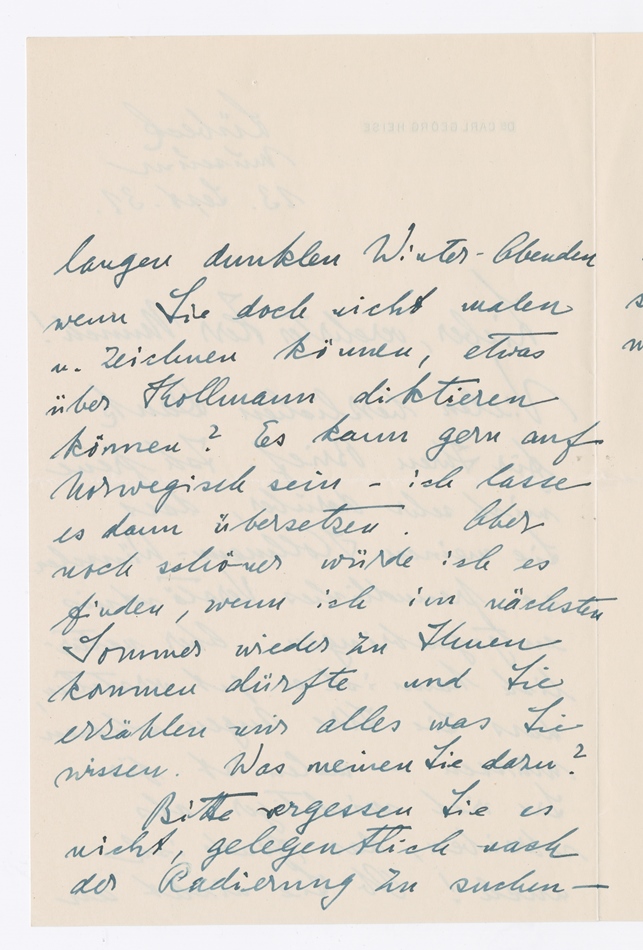 langen dunklen Winter-Abenden
wenn Sie doch nicht malen
u. zeichnen können, etwas
über Kollmann diktieren
können? Es kann gern auf
Norwegisch sein - ich lasse
es dann übersetzen. Aber
noch schöner würde ich es
finden, wenn ich im nächsten
Sommer wieder zu Ihnen
kommen dürfte und Sie
erzählen mir alles was Sie
wissen. Was meinen Sie dazu?
Bitte vergessen Sie es
nicht, gelegentlich nach
der Radierung zu suchen—